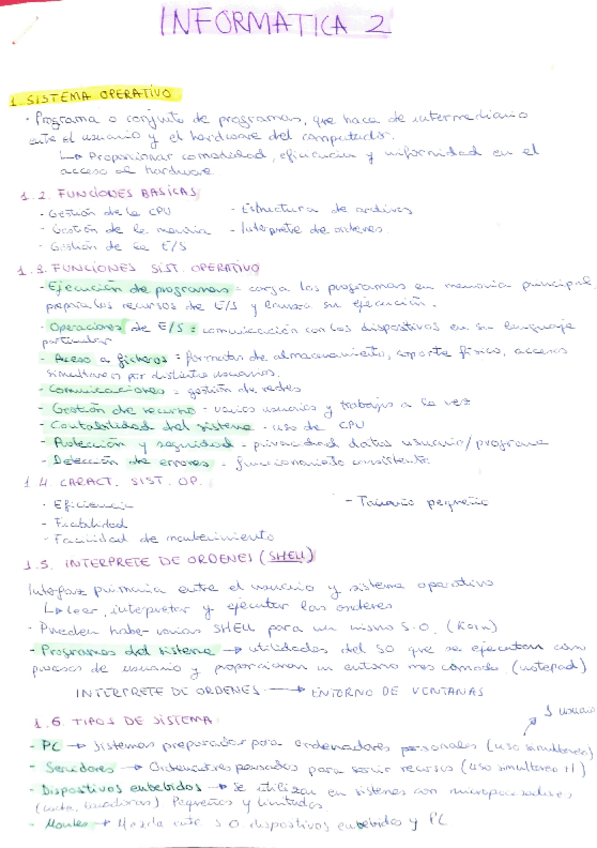 INFORMATICA 2
1. SISTEMA OPERATIVO
· Programa o conjunto de programas, que hace de intermediario
ente el usuario y el hardware del computador.
↳ Proporcionar comodidad, eficiencia y uniformidad en el
acceso al hardware
1.2. FUNCIONES BASICAS
- Gestión de la CPU - Estructura de archivos
- Gestión de la memoria - Interprete de ordenes
- Gestión de la E/S
1.3. FUNCIONES SIST. OPERATIVO
- Ejecución de programas = carga los programas en memoria principal,
prepara los recursos de E/S y su ejecución.
- Operaciones de E/S = comunicación con los dispositivos en su lenguaje
particular
- Acceso a ficheros = formatos de almacenamiento, soporte físico, accesos
simultaneos por distintos usuarios.
- Comunicaciones = gestión de redes
- Gestión de recursos - varios usuarios y trabajos a la vez
- Contabilidad del sistema - uso de CPU
- Protección y seguridad - privacidad datos usuario/programa
- Detección de errores - funcionamiento consistente.
1.4. CARACT. SIST. OP.
· Eficiencia - Tamaño pequeño
- Fiabilidad
- Facilidad de mantenimiento
1.5. INTERPRETE DE ORDENES (SHELL)
Interfaz primaria entre el usuario y sistema operativo
↳ leer, interpretar y ejecutar las ordenes
· Pueden haber varias SHELL para un mismo S.O. (Korn)
- Programas del sistema → utilidades del SO que se ejecutan como
procesos de usuario y proporcionan un entorno mas comodo. (notepad)
INTERPRETE DE ORDENES → ENTORNO DE VENTANAS
1.6. TIPOS DE SISTEMA
1 usuario
- PC → Sistemas preparados para ordenadores personales (uso simultaneo)
- Servidores → Ordenadores pensados para servir recursos (uso simultaneo +1)
- Dispositivos embebidos → Se utilizan en sistemas con microprocesadores
Pequeños y limitados
→ Mezcla entre S.O. dispositivos embebidos y PC